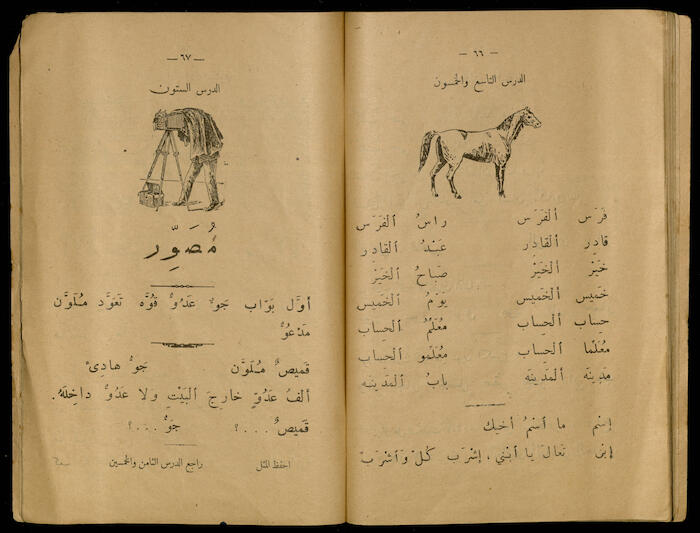 — ٦٦ —
الدرس التاسع والخمسون
فَرَس اَلْفَرَس راسُ اَلفَرَس
قادِر اَلْقادِر عَبْدُ اَلقادِر
خَيْرْ اَلْخَيْرْ صَباحُ اَلْخَيْرْ
خَميس اَلْخَميس يَوْمُ اَلْخَميس
حِساب اَلْحِساب مُعَلِّمُ اَلْحِساب
مُعَلِّما اَلْحِساب مُعَلِّمو اَلْحِساب
مَدينَه اَلْمَدينَه بابُ اَلْمَدينَه
إسْم ما أسْمُ أخيك
إبْن تَعالَ يا أبْني، إشْرَب كُلْ وَأشْرَبْ
— ٦٧ —
الدرس الستون
مُصَوِّر
أوَّل بَوّاب جَوٌّ عَدُوٌّ قُوَّه تَعَوَّد مُلَوَّن
مَدْعُوٌّ
قَميصٌ مُلَوَّن جَوٌّ هادِئ
ألفُ عَدُوٍّ خارِجَ اَلْبَيْتِ ولا عَدُوٌّ داخِلَهُ.
قَميصٌ...؟ جَوٌّ...؟
احفظ المثل راجع الدرس الثامن والخمسين